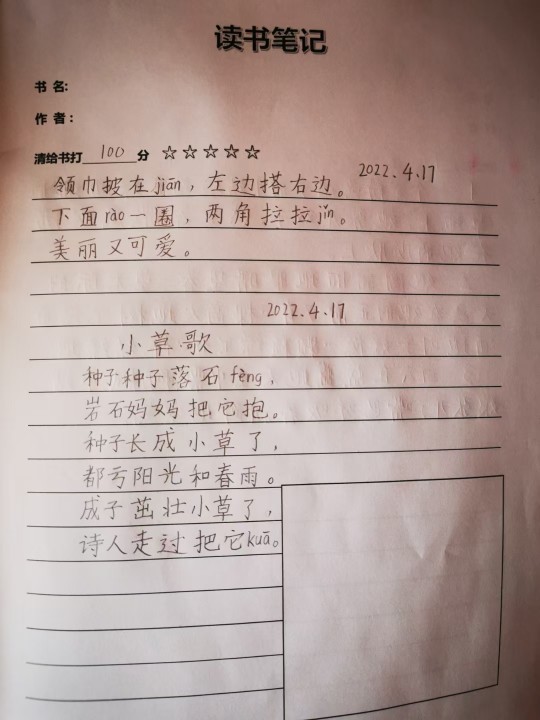 读书笔记
书 名:
作 者:
请给书打 100 分 ☆☆☆☆☆
2022.4.17
领巾披在jiān，左边搭右边。
下面rào一圈，两角拉拉jǐn。
美丽又可爱。
2022.4.17
小草歌
种子种子落石fèng，
岩石妈妈把它抱。
种子长成小草了，
都亏阳光和春雨。
成子茁壮小草了，
诗人走过把它kuā。